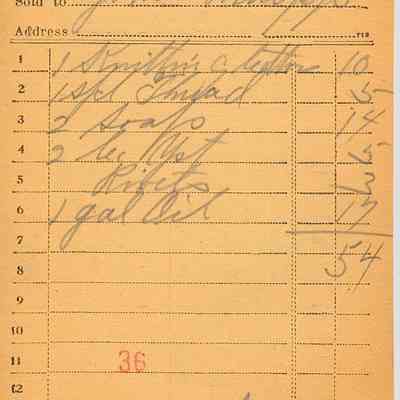 Sold to
Address
1 1 Knitting Cotton 10
2 1 Spl Thread 5
3 2 Soaps 14
4 2 5
5 Rivets 3
6 1 gal Oil 17
7
8 54
9
10
11 36
12